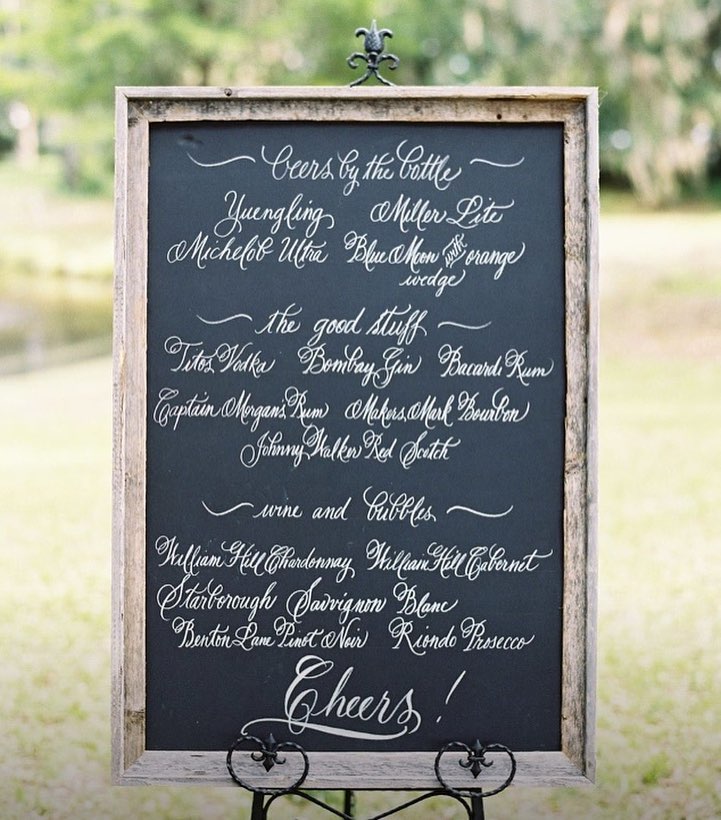 beers by the bottle
Yuengling Miller Lite
Michelob Ultra Blue Moon with orange
wedge
the good stuff
Titos Vodka Bombay Gin Bacardi Rum
Captain Morgans Rum Makers Mark Bourbon
Johnny Walker Red Scotch
wine and bubbles
William Hill Chardonnay William Hill Cabernet
Starborough Sauvignon Blanc
Benton Lane Pinot Noir Riondo Prosecco
Cheers!